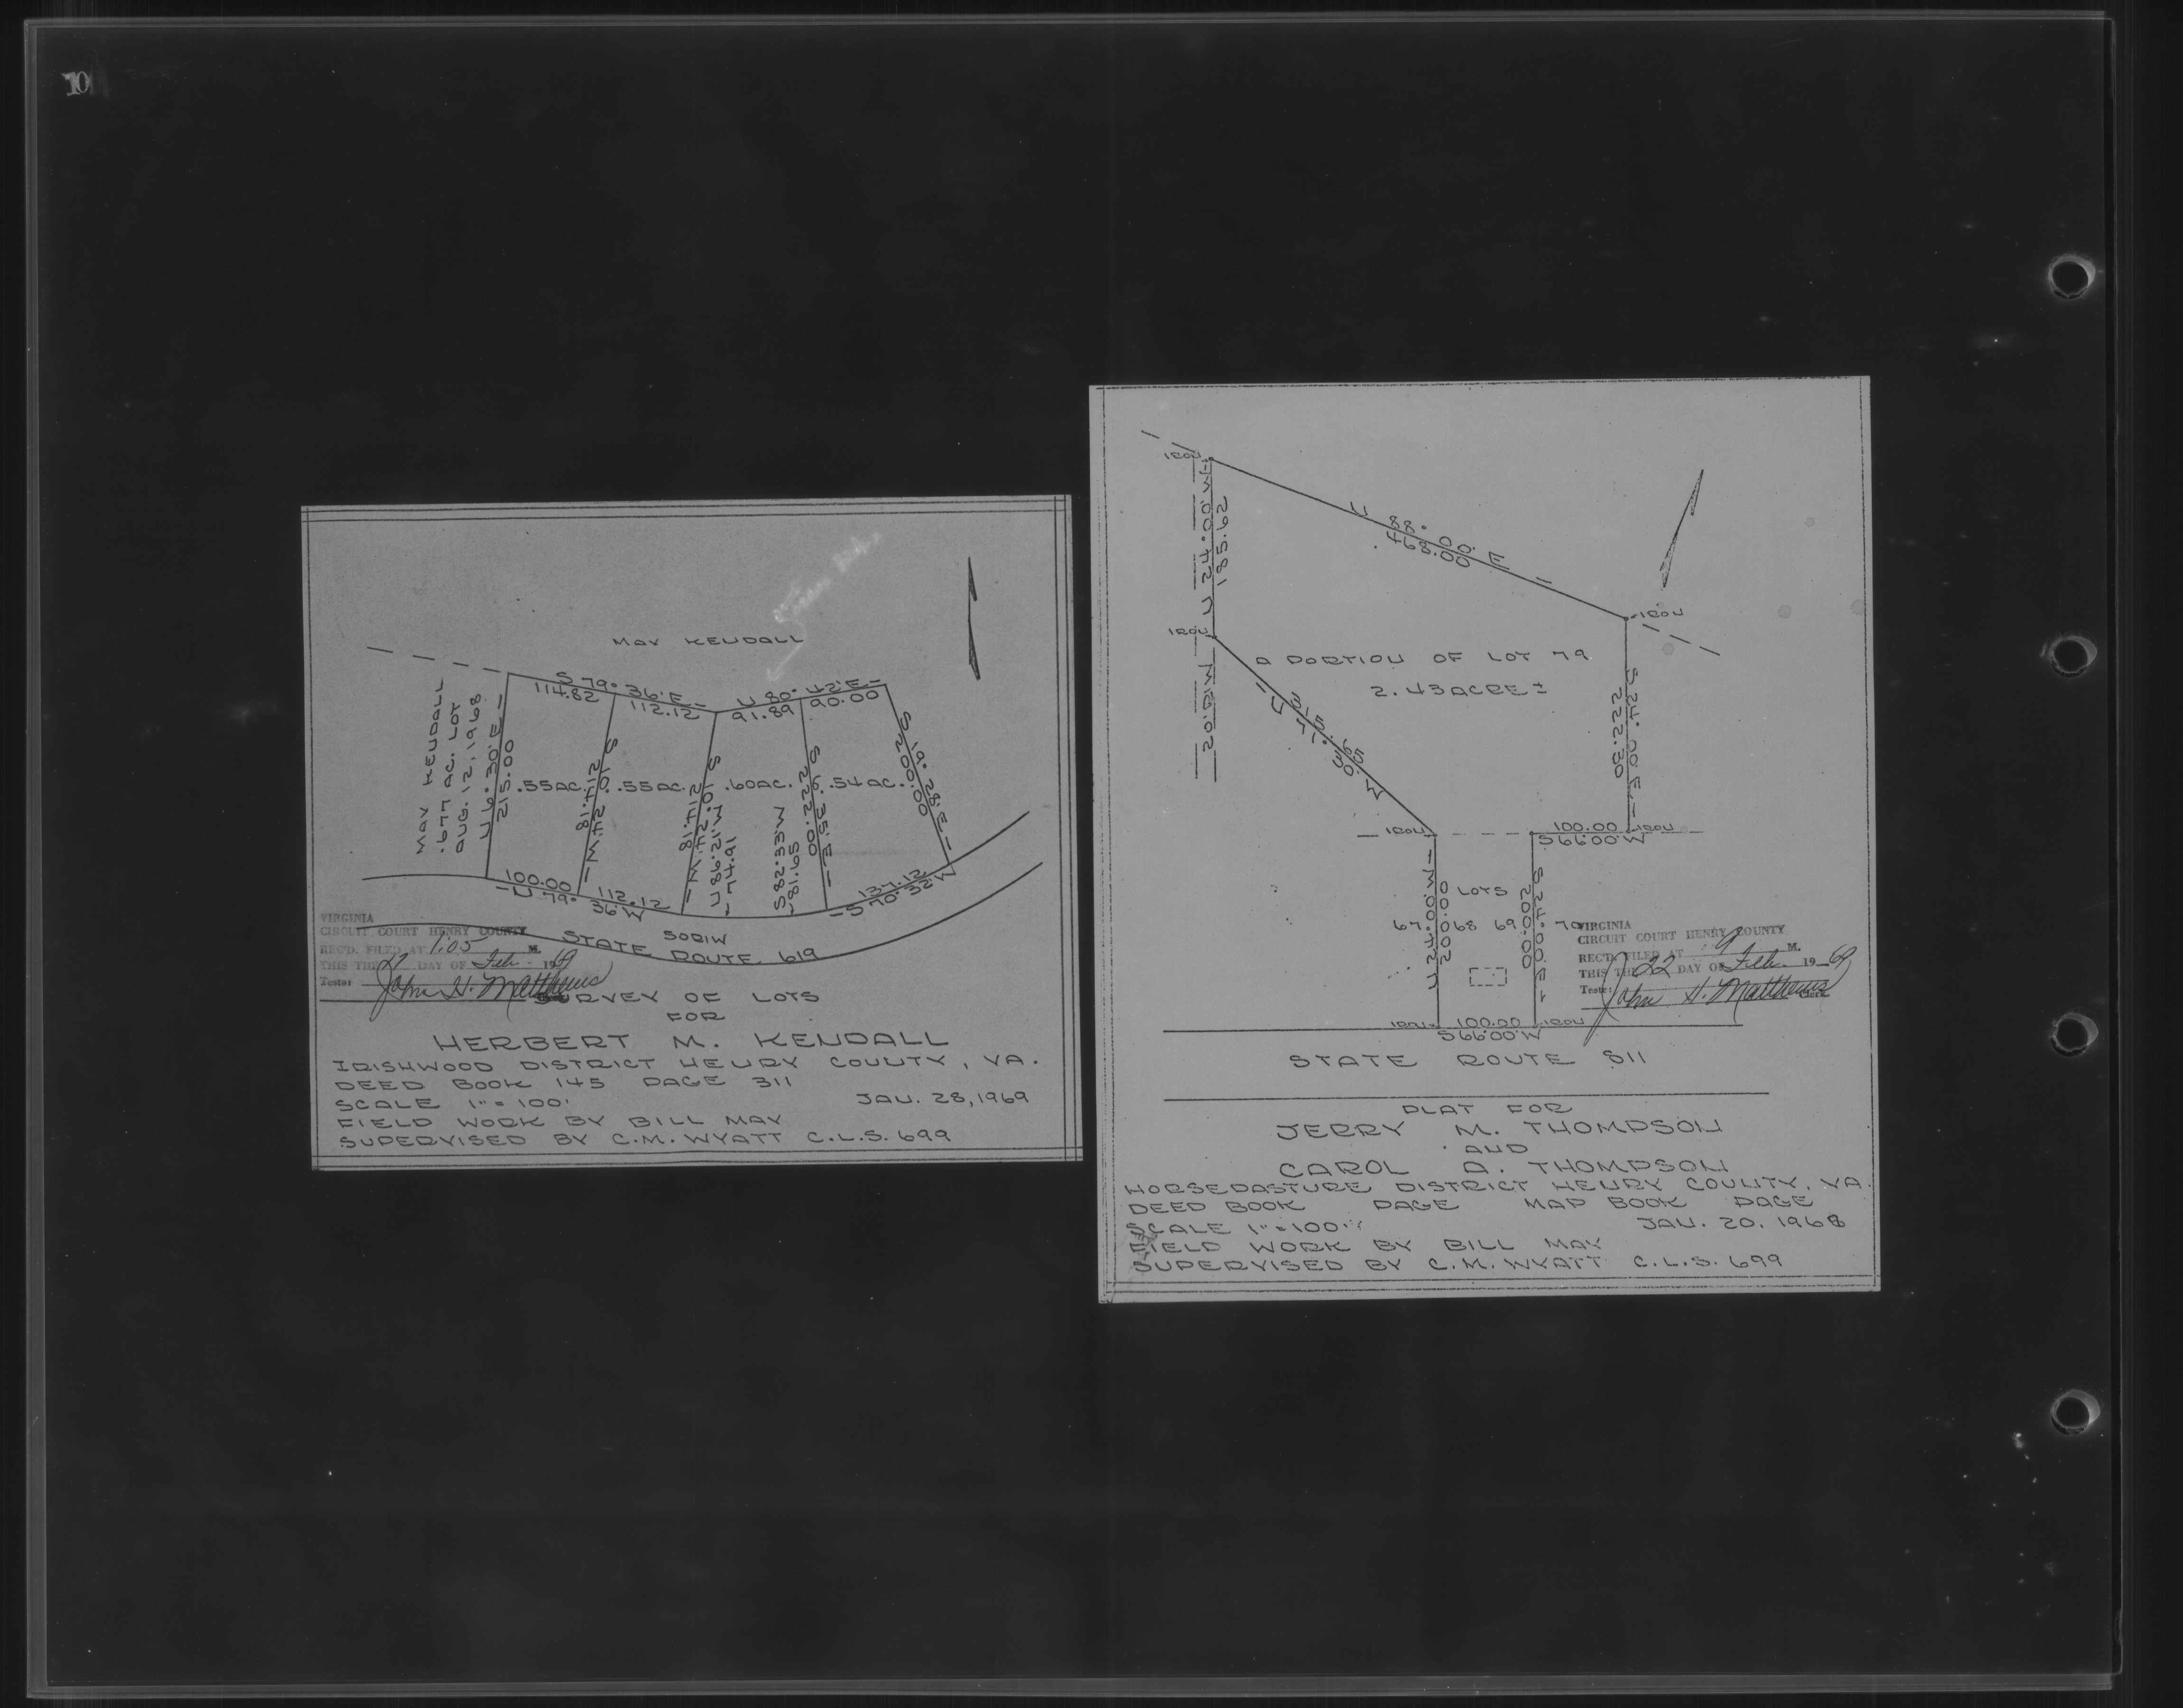 10
MAY KENDALL
S 79° 36' E
114.82
112.12
N 80° 42' E
91.89
90.00
MAY KENDALL
.677 AC. LOT
AUG. 12, 1968
N 6° 30' E
215.00
.55 AC.
S 10° 24' W
214.18
.55 AC.
S 10° 24' W
214.18
.60 AC.
S 6° 35' E
222.00
.54 AC.
S 19° 28' E
200.00
100.00
N 79° 36' W
112.12
N 86° 21' W
74.91
S 82° 33' W
81.65
137.12
S 70° 32' W
50 R/W
STATE ROUTE 619
VIRGINIA
CIRCUIT COURT HENRY COUNTY
REC'D. FILED AT 1:05 M.
THIS THE DAY OF Feb. 1969
Teste: John H. Matthews
SURVEY OF LOTS
FOR
HERBERT M. KENDALL
IRISHWOOD DISTRICT HENRY COUNTY, VA.
DEED BOOK 145 PAGE 311
SCALE 1" = 100'
JAN. 28, 1969
FIELD WORK BY BILL MAY
SUPERVISED BY C.M. WYATT C.L.S. 699
IRON
N 24° 00' W
185.62
N 88° 00' E
468.00
IRON
IRON
20' R/W
A PORTION OF LOT 79
2.43 ACRE ±
S 24° 00' E
222.30
IRON
100.00
IRON
S 66° 00' W
N 24° 00' W
200.00
LOTS
67
68
69
70
S 24° 00' E
200.00
IRON
100.00
IRON
S 66° 00' W
VIRGINIA
CIRCUIT COURT HENRY COUNTY
REC'D. FILED AT 9 M.
THIS THE 22 DAY OF Feb. 1969
Teste: John H. Matthews Clerk
STATE ROUTE 811
PLAT FOR
JERRY M. THOMPSON
AND
CAROL A. THOMPSON
HORSEPASTURE DISTRICT HENRY COUNTY, VA.
DEED BOOK PAGE MAP BOOK PAGE
SCALE 1" = 100'
JAN. 20, 1968
FIELD WORK BY BILL MAY
SUPERVISED BY C.M. WYATT C.L.S. 699